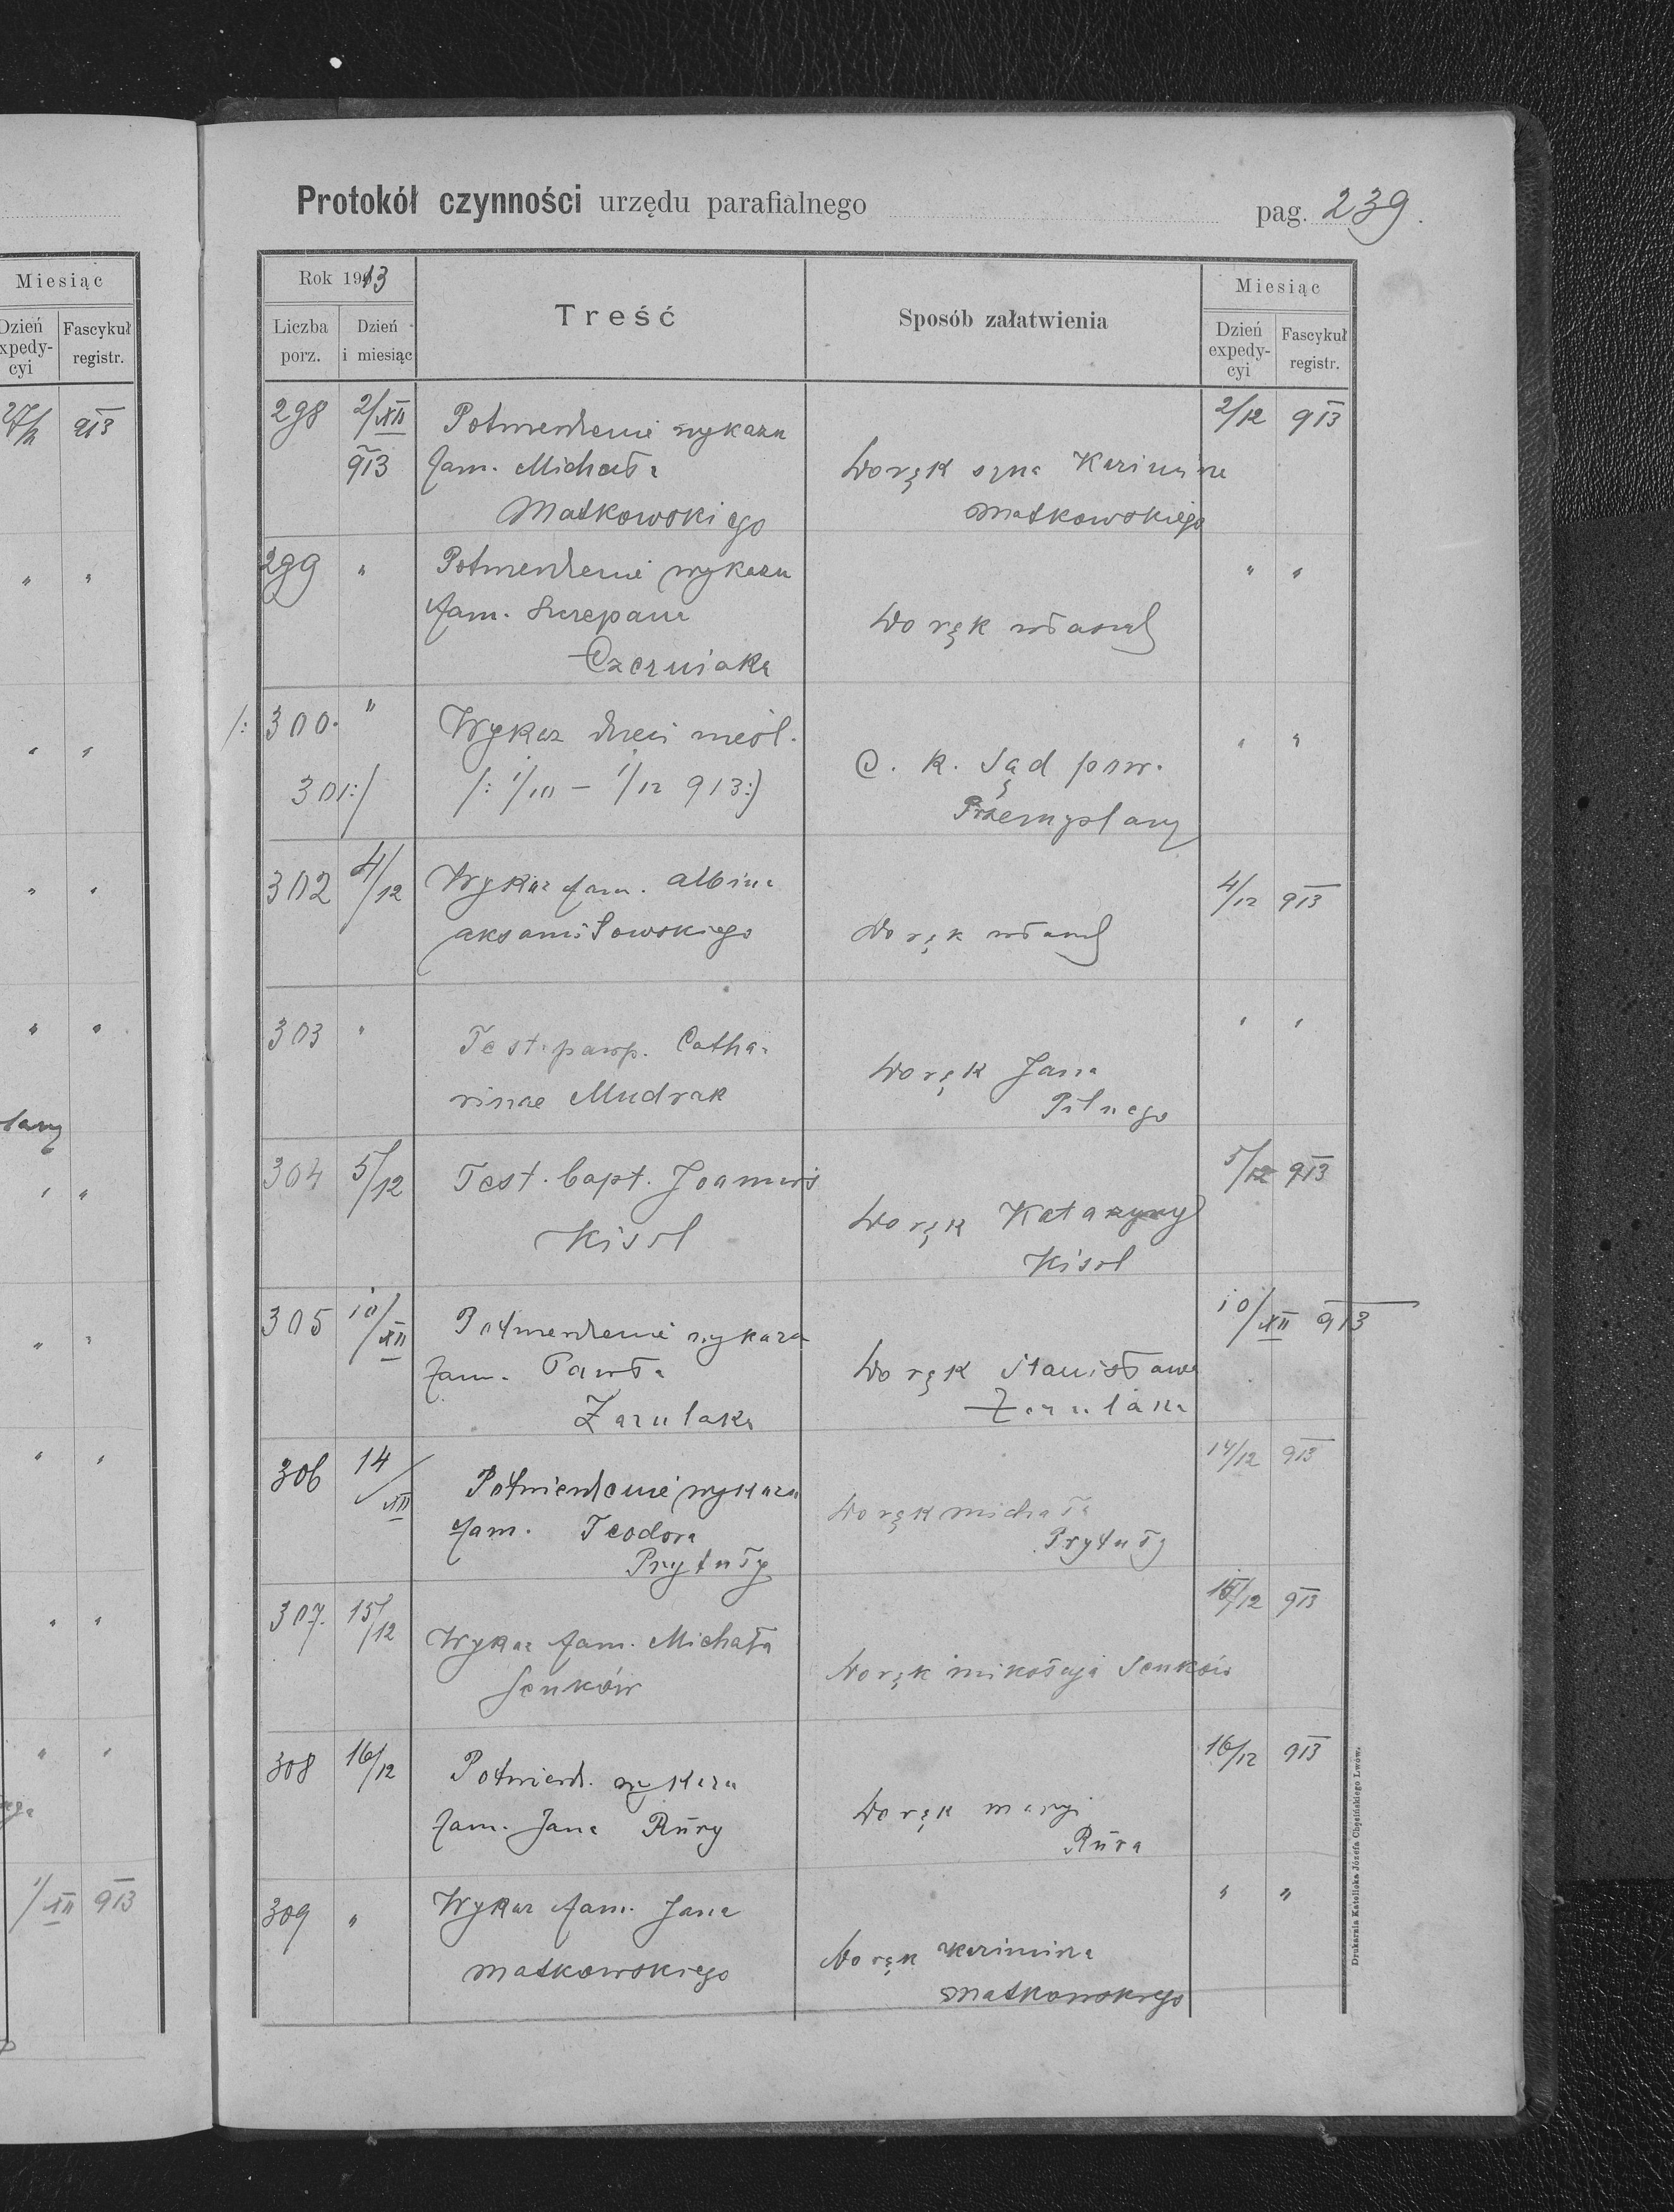 Protokół czynności urzędu parafialnego pag. 239.
Miesiąc
Dzień expedycyi Fascykuł registr.
27/12 913
" "
" "
" "
" "
" "
" "
" "
" "
" "
1/XII 913
Rok 1913 Treść Sposób załatwienia Miesiąc
Liczba porz. Dzień i miesiąc Dzień expedycyi Fascykuł registr.
298 2/XII 913 Potwierdzenie wykazu 2/12 913
fam. Michała Do rąk syna Kazimirza
Matkowskiego Matkowskiego
299 " Potwierdzenie wykazu " "
fam. Szczepana Do rąk własnych
Czerniaka
/: 300. " Wykaz dzieci nieśl. " "
301 :/ /: 1/10 – 1/12 913 :/ C. k. Sąd pow.
Przemyślany
302 4/12 Wykaz fam. Albina 4/12 913
Aksamitowskiego Do rąk własnych
303 " Test. paup. Catha- " "
rinae Mudrak Do rąk Jana
Pilnego
304 5/12 Test. bapt. Joannis 5/12 913
Kisil Do rąk Katarzyny
Kisil
305 10/XII Potwierdzenie wykazu 10/XII 913
fam. Pawła Do rąk Stanisława
Zazulaka Zazulaka
306 14/XII Potwierdzenie wykazu 14/12 913
fam. Teodora Do rąk Michała
Prytuły Prytuły
307. 15/12 Wykaz fam. Michała 15/12 913
Seńków Do rąk Mikołaja Seńków
308 16/12 Potwierdz. wykazu 16/12 913
fam. Jana Rury Do rąk Maryi
Rura
309 " Wykaz fam. Jana " "
Matkowskiego Do rąk Kazimirza
Matkowskiego
Drukarnia Katolicka Józefa Chęcińskiego Lwów.